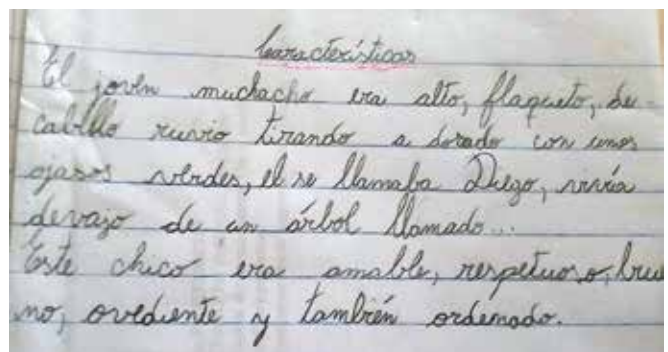 Características
El joven muchacho era alto, flaqueto, de
cabello ruvio tirando a dorado con unos
ojasos verdes, el se llamaba Diego, vivía
devajo de un árbol llamado...
Este chico era amable, respetuoso, bue
no, ovediente y también ordenado.